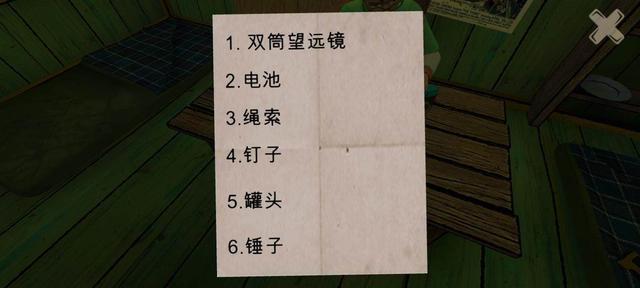 1. 双筒望远镜
2.电池
3.绳索
4.钉子
5.罐头
6.锤子